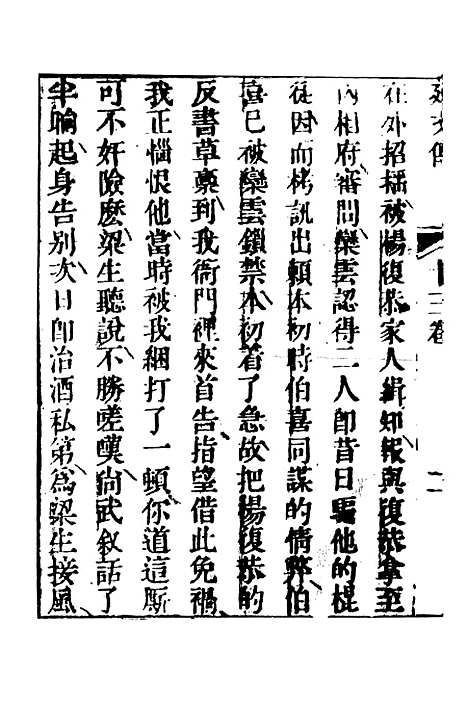 在外招搖被楊復恭家人緝知報與復恭拿至
內相府審問欒雲認得二人卽昔日騙他的棍
徒因而栲訊出賴本初時伯喜同謀的情弊伯
喜已被欒雲鎖禁本初着了急故把楊復恭的
反書草稾到我衙門裡來首告指望借此免禍
我正惱恨他當時被我綑打了一頓你道這厮
可不奸險麽梁生聽說不勝嗟嘆尙武敘話了
半晌起身告別次日卽治酒私第爲梁生接風
三卷